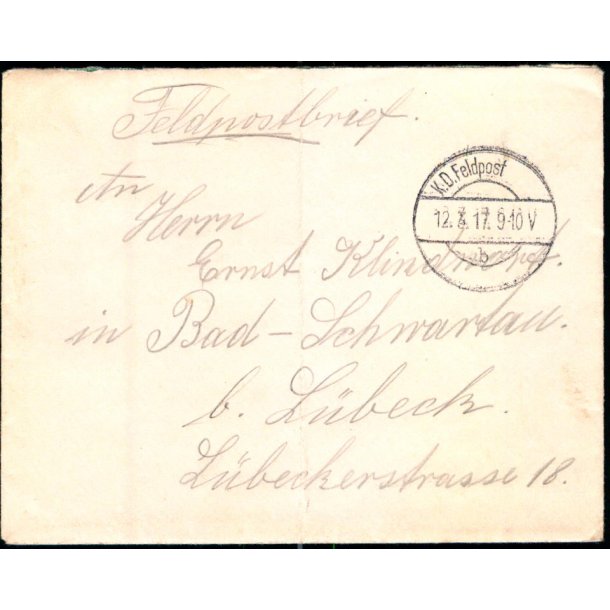 Feldpostbrief.
An
Herrn
Ernst
in Bad-Schwartau.
b. Lübeck.
Lübeckerstrasse 18.
K.D.Feldpost
17. 9-10 V
b